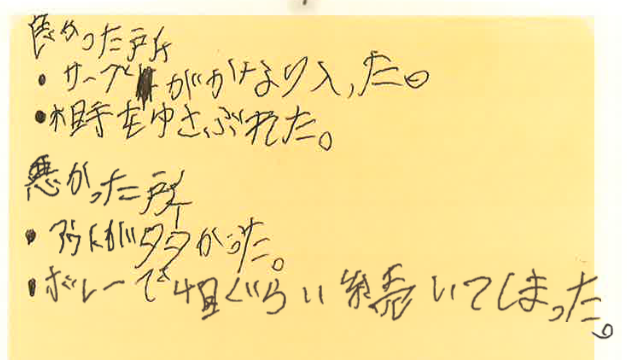 良かった所
・サーブがかなり入った。
・相手をゆさぶれた。
悪かった所
・アウトが多かった。
・ボレーで4回ぐらい続いてしまった。